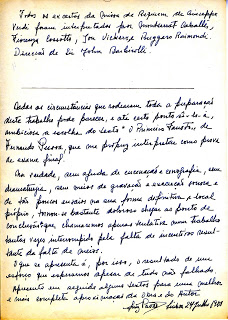 Todos os excertos da Missa de Requiem de Giuseppe
Verdi foram interpretados por Montserrat Caballé,
Fiorenza Cossotto, Jon Vickers e Ruggero Raimondi.
Direcção de Sir John Barbirolli
Dadas as circunstâncias que rodearam toda a preparação
deste trabalho pode parecer, e até certo ponto sê-lo-á,
ambiciosa a escolha do texto "O Primeiro Fausto", de
Fernando Pessoa, que me propus interpretar como prova
de exame final.
Na verdade, sem ajuda de encenação e cenografia, sem
dramaturgia, sem meios de gravação e execução sonora, e
de tão poucos ensaios na sua forma definitiva e local
próprio, torna-se bastante doloroso chegar ao ponto de
tantas vezes interrompido pela falta de
tante da falta de meios.
O que se apresenta é, por isso, o resultado de um
esforço que esperamos apesar de tudo não falhado.
Apresento em seguida alguns textos para uma melhor
e mais completa aproximação da obra e do Autor
Lisboa, 24 Julho 1980